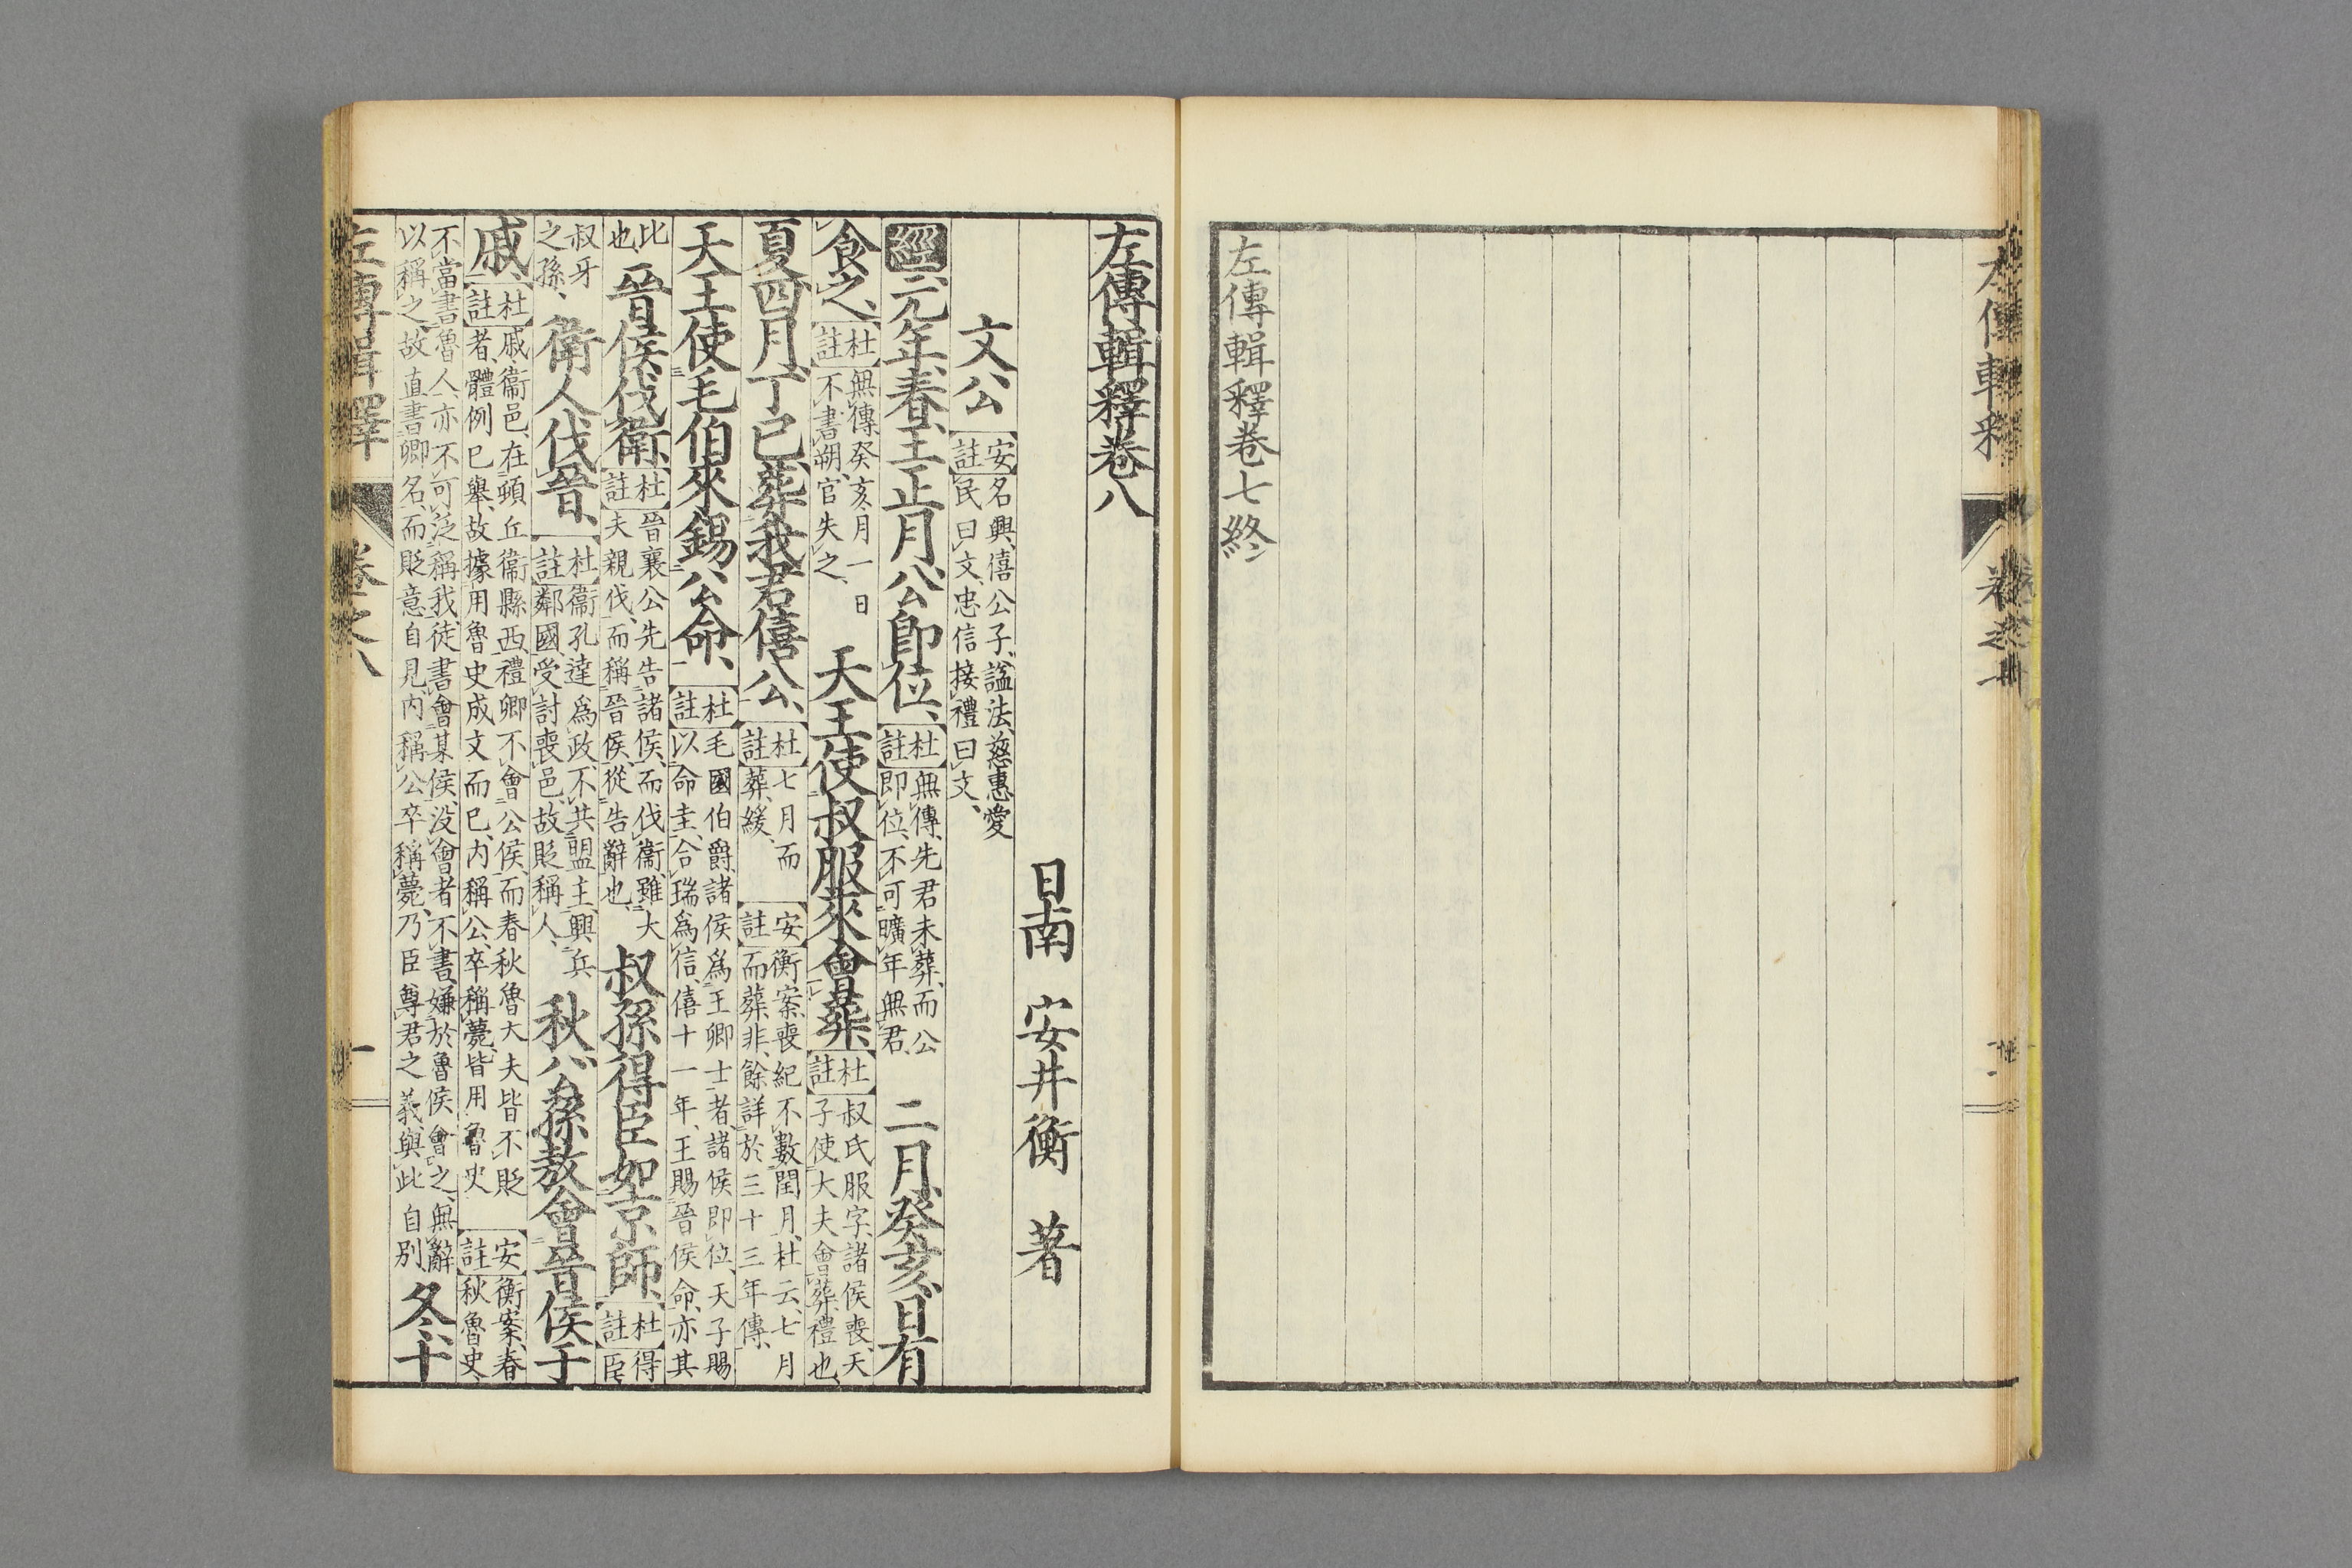 左傳輯釋卷七終
左傳輯釋卷八
日南 安井衡 著
文公
安註
名興、僖公子、諡法、慈惠愛
民曰文、忠信接禮曰文、
經元年、春、王正月、公即位、
杜註
無傳、先君未葬、而公
即位、不可曠年無君、
二月、癸亥、日有
食之、
杜註
無傳、癸亥、月一日
不書朔、官失之、
天王使叔服來會葬、
杜註
叔氏、服字、諸侯喪、天
子使大夫會葬、禮也、
夏四月、丁巳、葬我君僖公、
杜註
七月而
葬、緩、
安註
衡案、喪紀不數閏月、杜云、七月
而葬、非、餘詳於三十三年傳、
天王使毛伯來錫公命、
杜註
毛國、伯爵、諸侯爲王卿士者、諸侯即位、天子賜
以命圭、合瑞爲信、僖十一年、王賜晉侯命、亦其
比
也、
晉侯伐衛、
杜註
晉襄公先告諸侯、而伐衞、雖大
夫親伐、而稱晉侯、從告辭也、
叔孫得臣如京師、
杜註
得
臣、
叔牙
之孫、
衛人伐晉、
杜註
衞孔達爲政、不共盟主、興兵
鄰國、受討喪邑、故貶稱人、
秋、公孫敖會晉侯于
戚、
杜註
戚、衞邑、在頓丘衞縣西、禮卿不會公侯、而春秋魯大夫皆不貶
者、體例已舉、故據用魯史成文而已、内稱公、卒稱薨、皆用魯史
安註
衡案、春
秋魯史、
不當書魯人、亦不可泛稱我、徒書會某侯、没會者不書、嫌於魯侯會之、無辭
以稱之、故直書卿名、而貶意自見、内稱公卒稱薨、乃臣尊君之義、與此自別
冬、十
左傳輯釋 卷之八
一